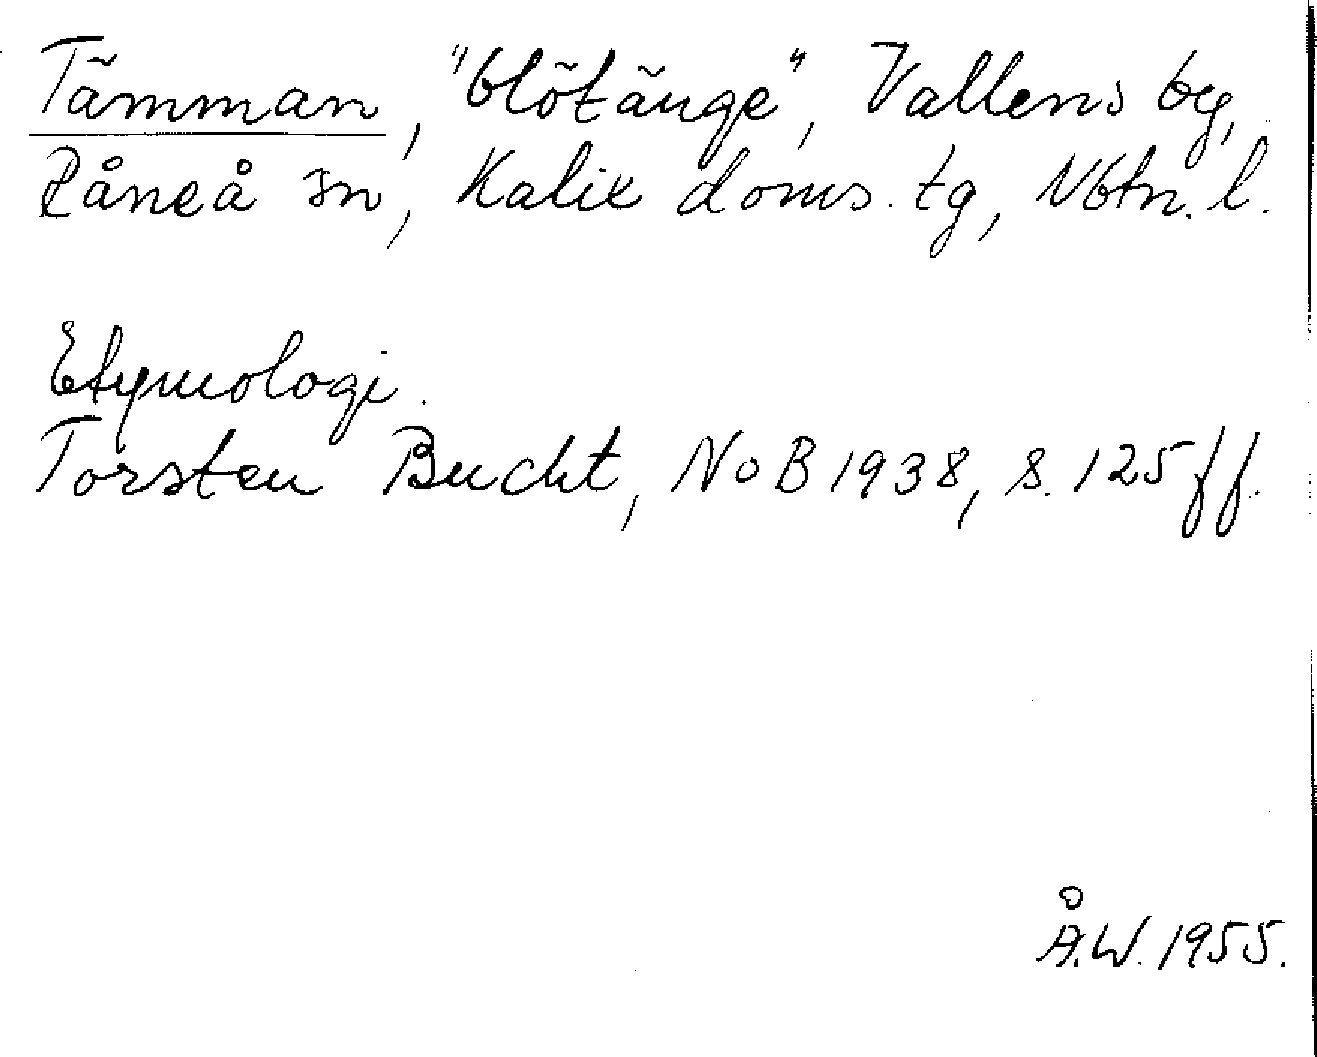 Tämman, "blötänge", Vallens by,
Råneå sn, Kalix doms. tg, Nbtn. l.
Etymologi.
Torsten Bucht, NoB 1938, s. 125 ff.
Å.W. 1955.